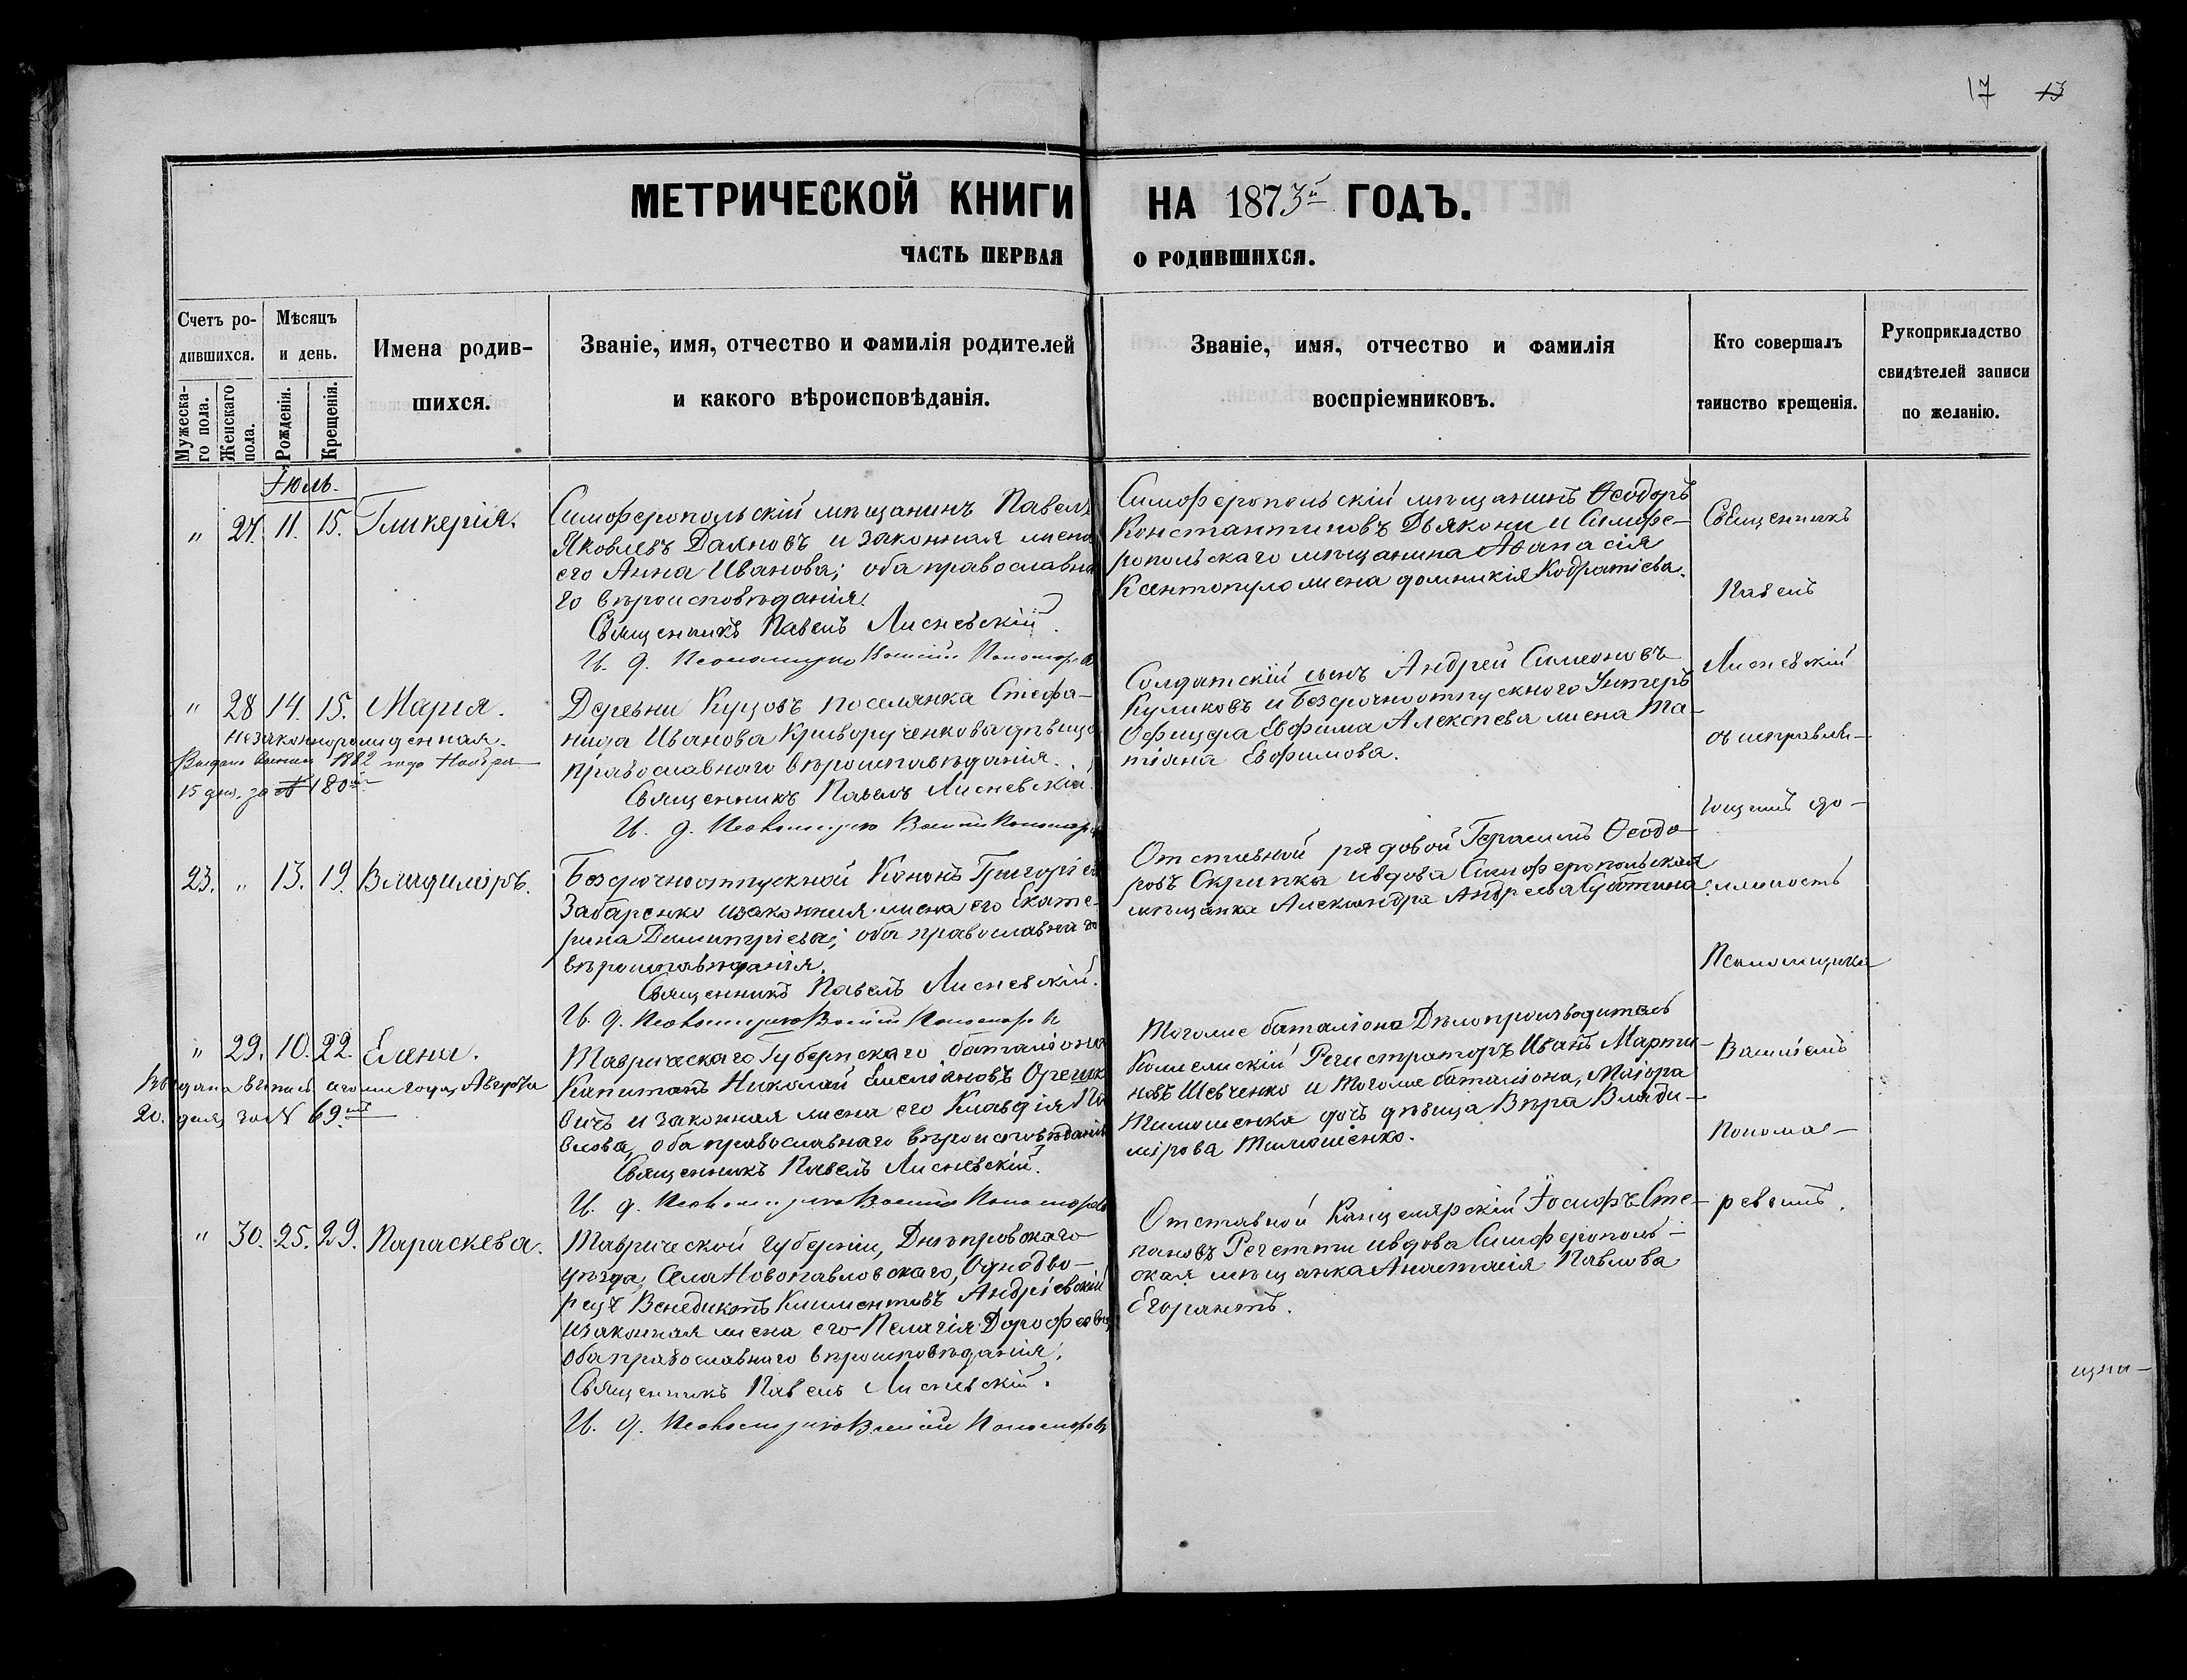 17 13
МЕТРИЧЕСКОЙ КНИГИ НА 1873й ГОДЪ.
ЧАСТЬ ПЕРВАЯ О РОДИВШИХСЯ.
Счетъ ро-
дившихся.
Мужеска-
го пола.
Женскаго
пола.
Мѣсяцъ
и день.
Рожденія.
Крещенія.
Имена родив-
шихся.
Званіе, имя, отчество и фамилія родителей
и какого вѣроисповѣданія.
Званіе, имя, отчество и фамилія
воспріемниковъ.
Кто совершалъ
таинство крещенія.
Рукоприкладство
свидѣтелей записи
по желанію.
Іюль.
" 27. 11. 15. Гликерія.
Симферопольскій мѣщанинъ Павелъ
Яковлевъ Даяновъ и законная жена
его Анна Иванова; оба православна
го вѣроисповѣданія.
Священникъ Павелъ Лисневскій.
И. д. Псаломщика Василій Пономаревъ
Симферопольскій мѣщанинъ Ѳеодоръ
Константиновъ Дьякони и Симфе-
ропольскаго мѣщанина Аѳанасія
Ксантопуло жена Домникія Кодратіева.
" 28 14. 15. Марія.
незаконнорожденная.
Выдана выпись 1882 года Ноября
15 дня, за № 180м
Деревни Курцовъ поселянка Стефа-
нида Иванова Криворученкова дѣвица
православнаго вѣроисповѣданія.
Священникъ Павелъ Лисневскій.
И. д. Псаломщика Василій Пономаревъ
Солдатскій сынъ Андрей Симеоновъ
Куликовъ и безсрочноотпускного Унтеръ
Офицера Евфима Алексѣева жена Та-
тіана Евфимова.
23. " 13. 19. Владиміръ.
Безсрочноотпускной Кононъ Григоріевъ
Забаренко и законная жена его Екате-
рина Димитріева; оба православнаго
вѣроисповѣданія.
Священникъ Павелъ Лисневскій.
И. д. Псаломщика Василій Пономаревъ
Отставной рядовой Герасимъ Ѳеодо
ровъ Скрипка и вдова Симферопольская
мѣщанка Александра Андреева Субботина.
" 29. 10. 22. Елена.
Выдана выпись сего же года, Августа
20. дня, за № 69м
Таврическаго Губернскаго баталіона
Капитанъ Николай Емеліановъ Орешко
вичъ и законная жена его Клавдія Па
влова, оба православнаго вѣроисповѣданія
Священникъ Павелъ Лисневскій.
И. д. Псаломщика Василій Пономаревъ
Тогоже баталіона Дѣлопроизводитель
Коллежскій Регистраторъ Иванъ Марти-
новъ Шевченко и тогоже баталіона, Маіора
Тимошенка дочь дѣвица Вѣра Влади-
мірова Тимошенко.
" 30. 25. 29. Параскева.
Таврической губерніи, Днѣпровскаго
уѣзда, Села Новопавловскаго, Однодво-
рецъ Венедиктъ Климентовъ Андріевскій
и законная жена его Пелагія Дорофеева,
оба православнаго вѣроисповѣданія.
Священникъ Павелъ Лисневскій.
И. д. Псаломщика Василій Пономаревъ
Отставной Канцелярскій Іосифъ Сте-
пановъ Регетти и вдова Симферополь-
ская мѣщанка Анастасія Павлова
Егорантъ.
Священникъ
Павелъ
Лисневскій
съ исправля-
ющимъ до-
лжность
Псаломщика
Василіемъ
Понома-
ревымъ.